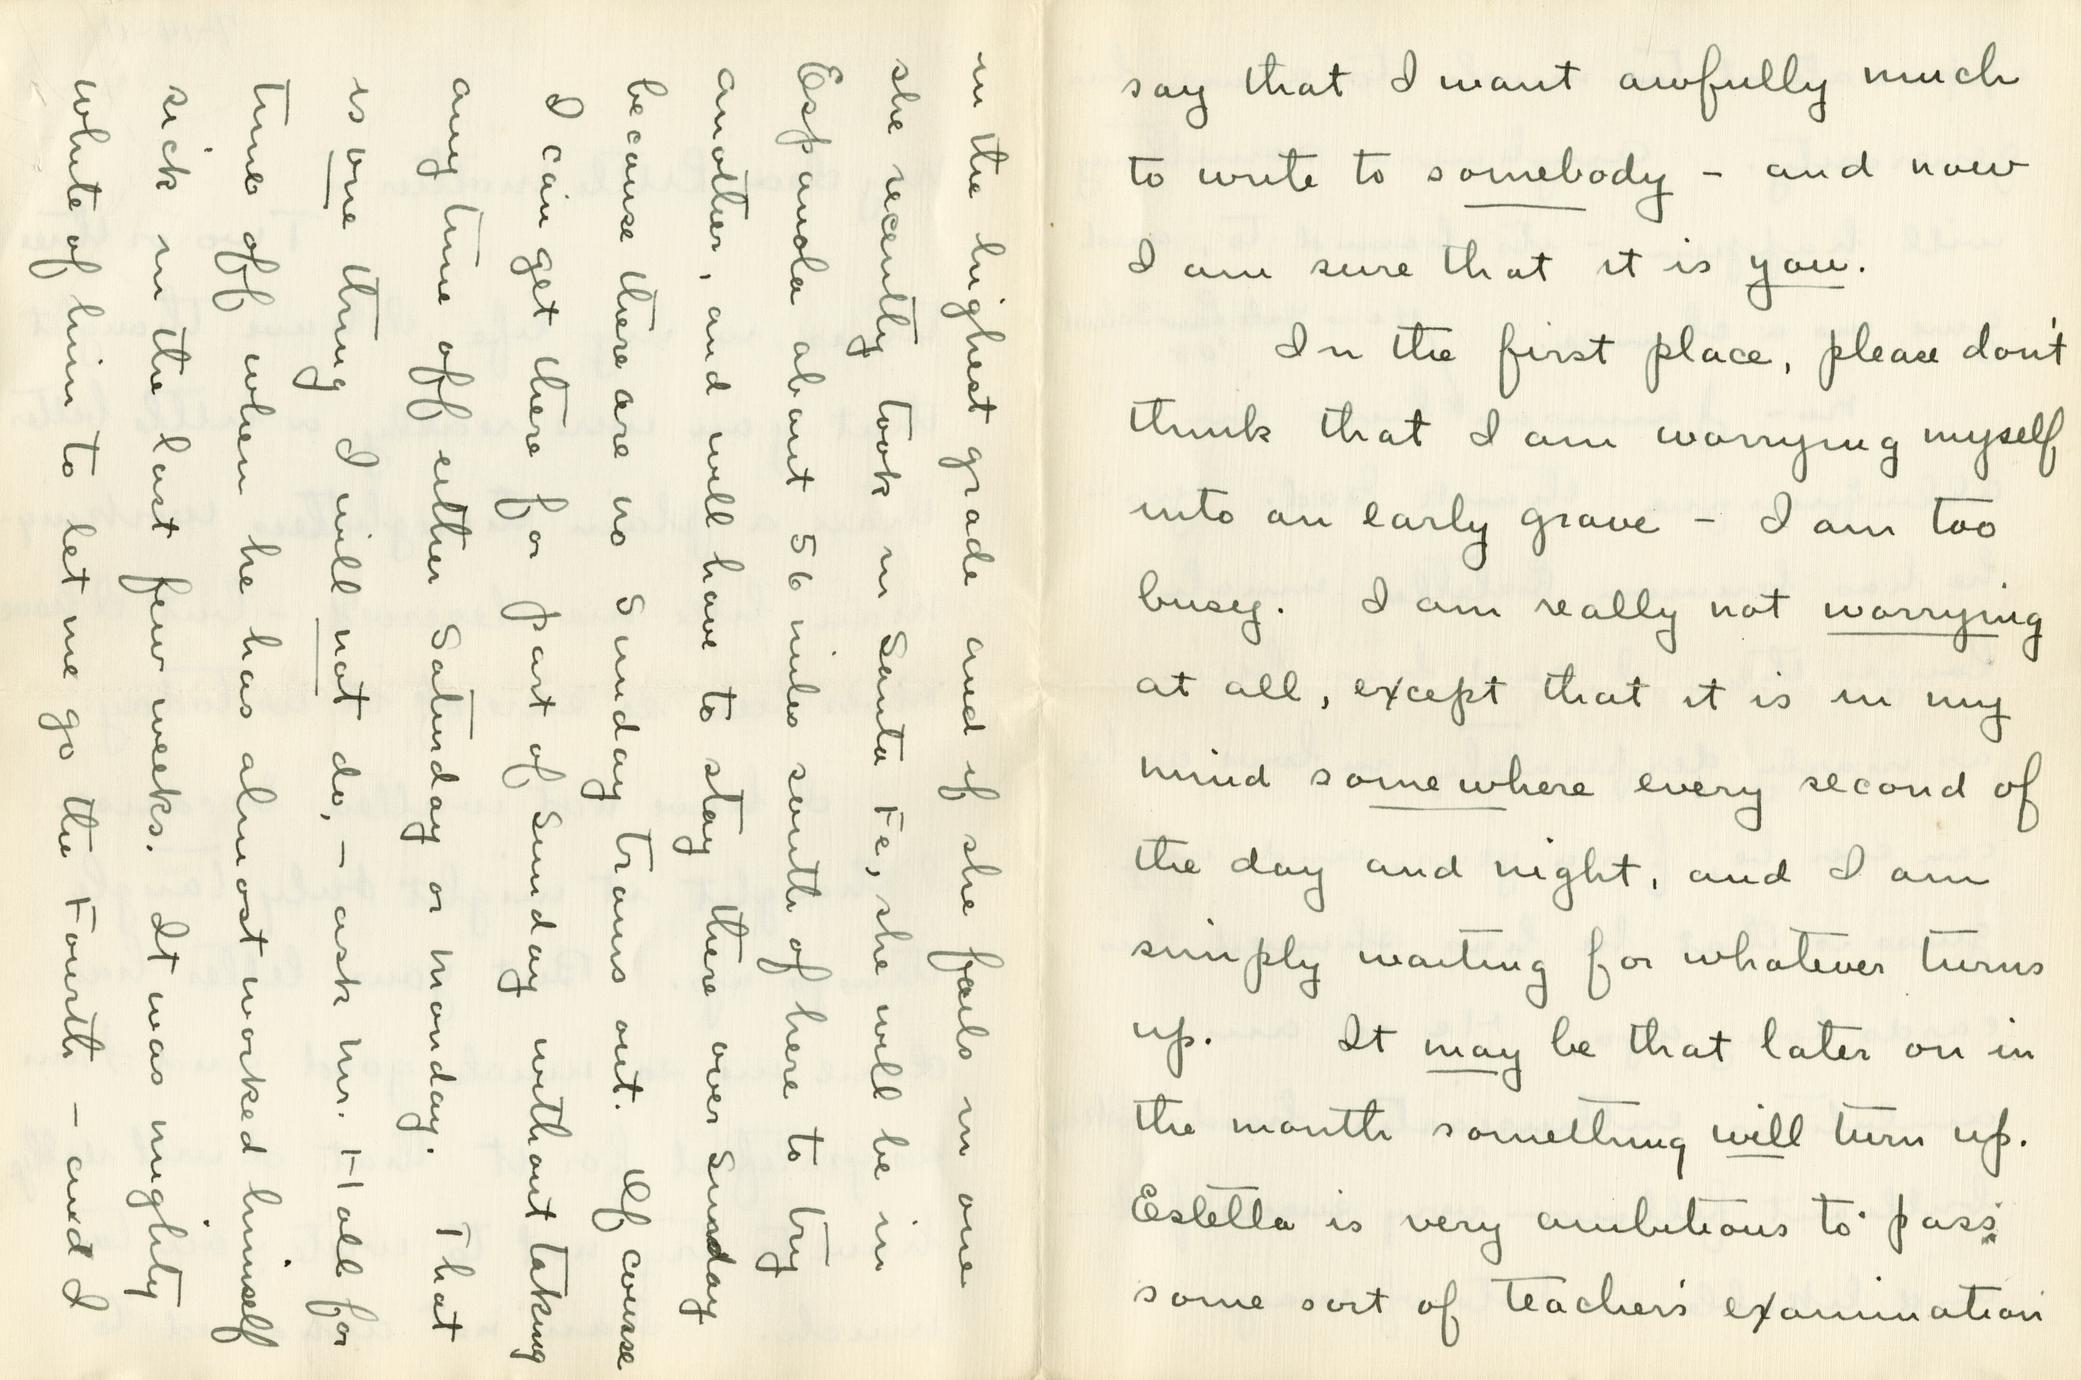 say that I want awfully much
to write to somebody – and now
I am sure that it is you.
In the first place, please don't
think that I am worrying myself
into an early grave – I am too
busy. I am really not worrying
at all, except that it is in my
mind somewhere every second of
the day and night, and I am
simply waiting for whatever turns
up. It may be that later on in
the month something will turn up.
Estella is very ambitious to pass
some sort of teacher's examination
in the highest grade and if she fails in one
she recently took in Santa Fe, she will be in
Espanola about 56 miles south of here to try
another, and will have to stay there over Sunday
because there are no Sunday trains out. If course
I can get there for part of Sunday without taking
any time off either Saturday or Monday. That
is one thing I will not do, – ask Mr. Hall for
time off when he has almost worked himself
sick in the last few weeks. It was mighty
white of him to let me go the Fourth – and I